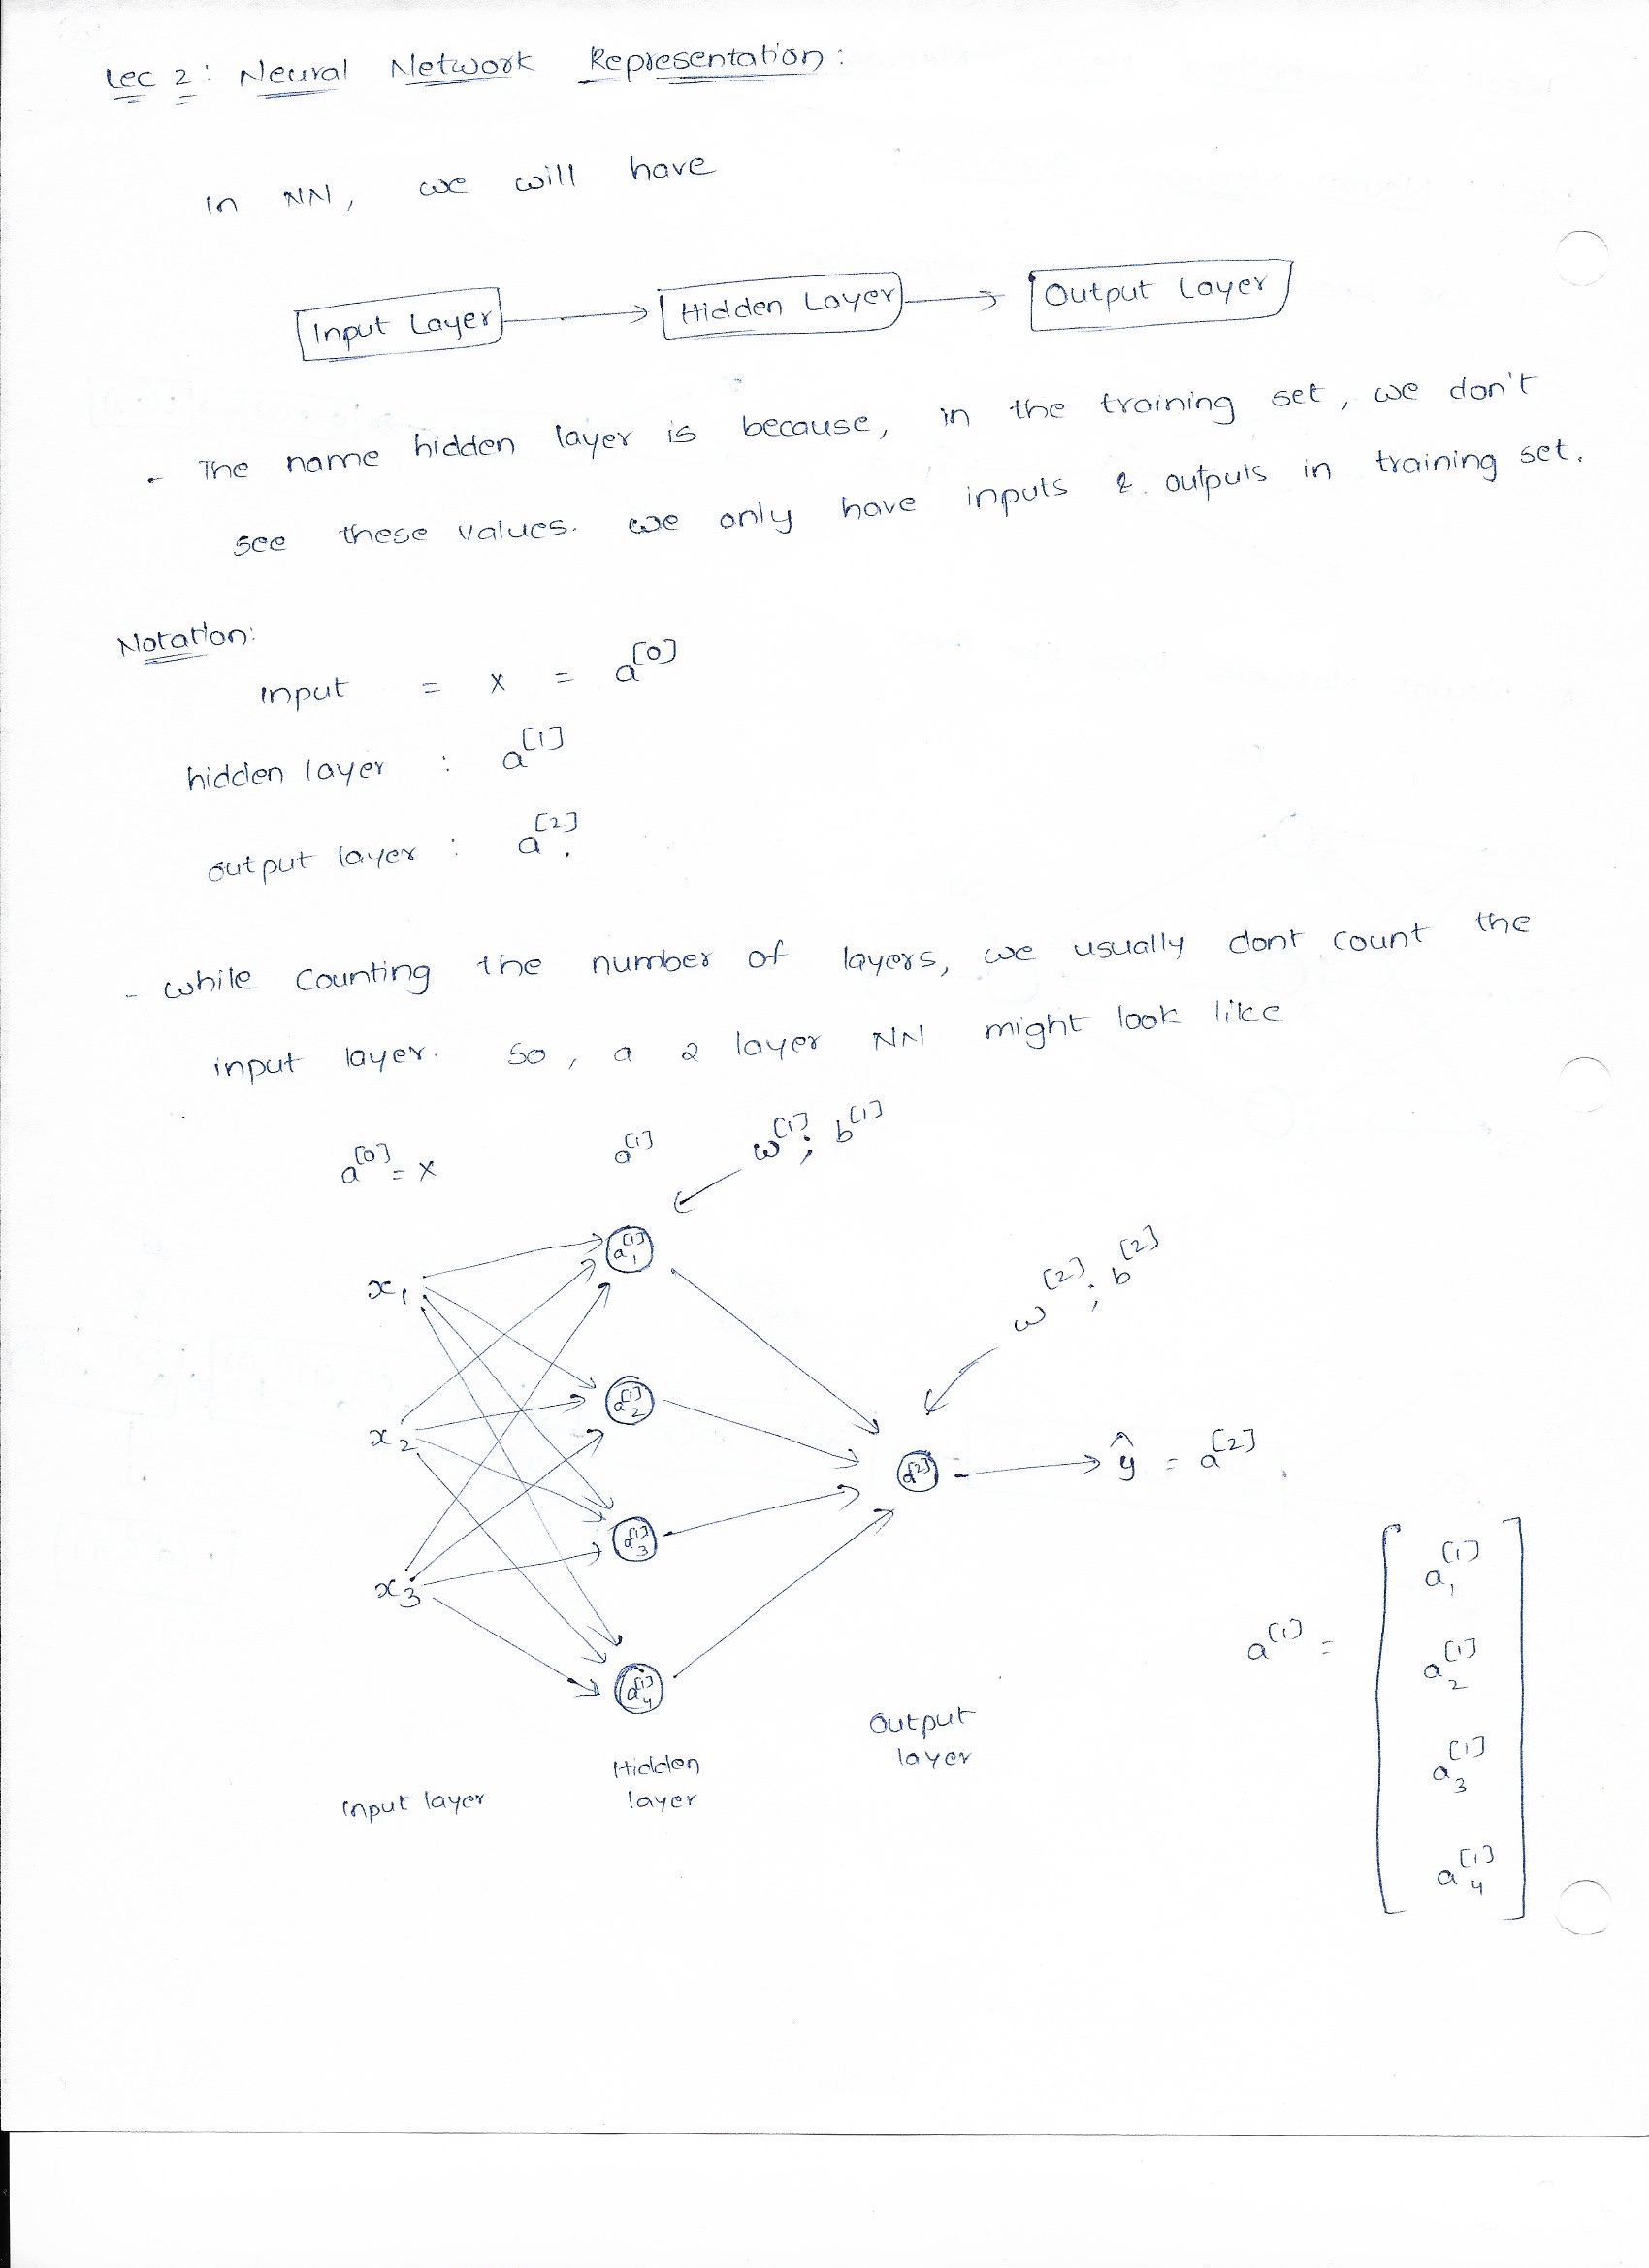 Lec 2: Neural Network Representation:
in NN, we will have
Input Layer → Hidden Layer → Output Layer
- The name hidden layer is because, in the training set, we don't
see these values. we only have inputs & outputs in training set.
Notation:
input = x = a^[0]
hidden layer : a^[1]
output layer : a^[2].
- while counting the number of layers, we usually dont count the
input layer. So, a 2 layer NN might look like
a^[0] = x a^[1] w^[1]; b^[1]
a_1^[1]
x_1
w^[2]; b^[2]
a_2^[1]
x_2
a^[2] → ŷ = a^[2].
a_3^[1]
x_3
a_4^[1]
a^[1] = [ a_1^[1]
a_2^[1]
a_3^[1]
a_4^[1] ]
Input layer
Hidden
layer
Output
layer